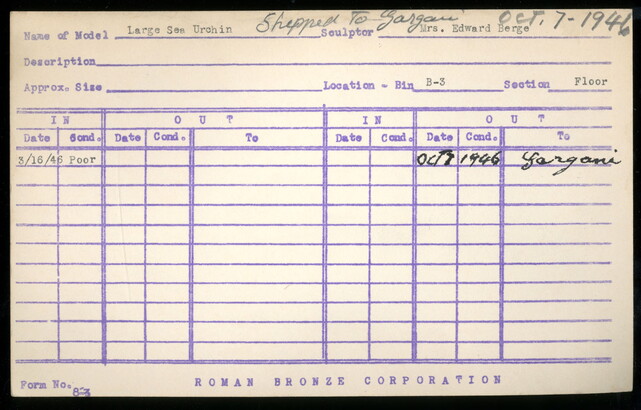 Shipped To Gargani Oct. 7-1946
Name of Model Large Sea Urchin Sculptor Mrs. Edward Berge
Description
Approx. Size Location - Bin B-3 Section Floor
IN OUT IN OUT
Date Cond. Date Cond. To Date Cond. Date Cond. To
3/16/46 Poor Oct 7 1946 Gargani
Form No. 83
ROMAN BRONZE CORPORATION